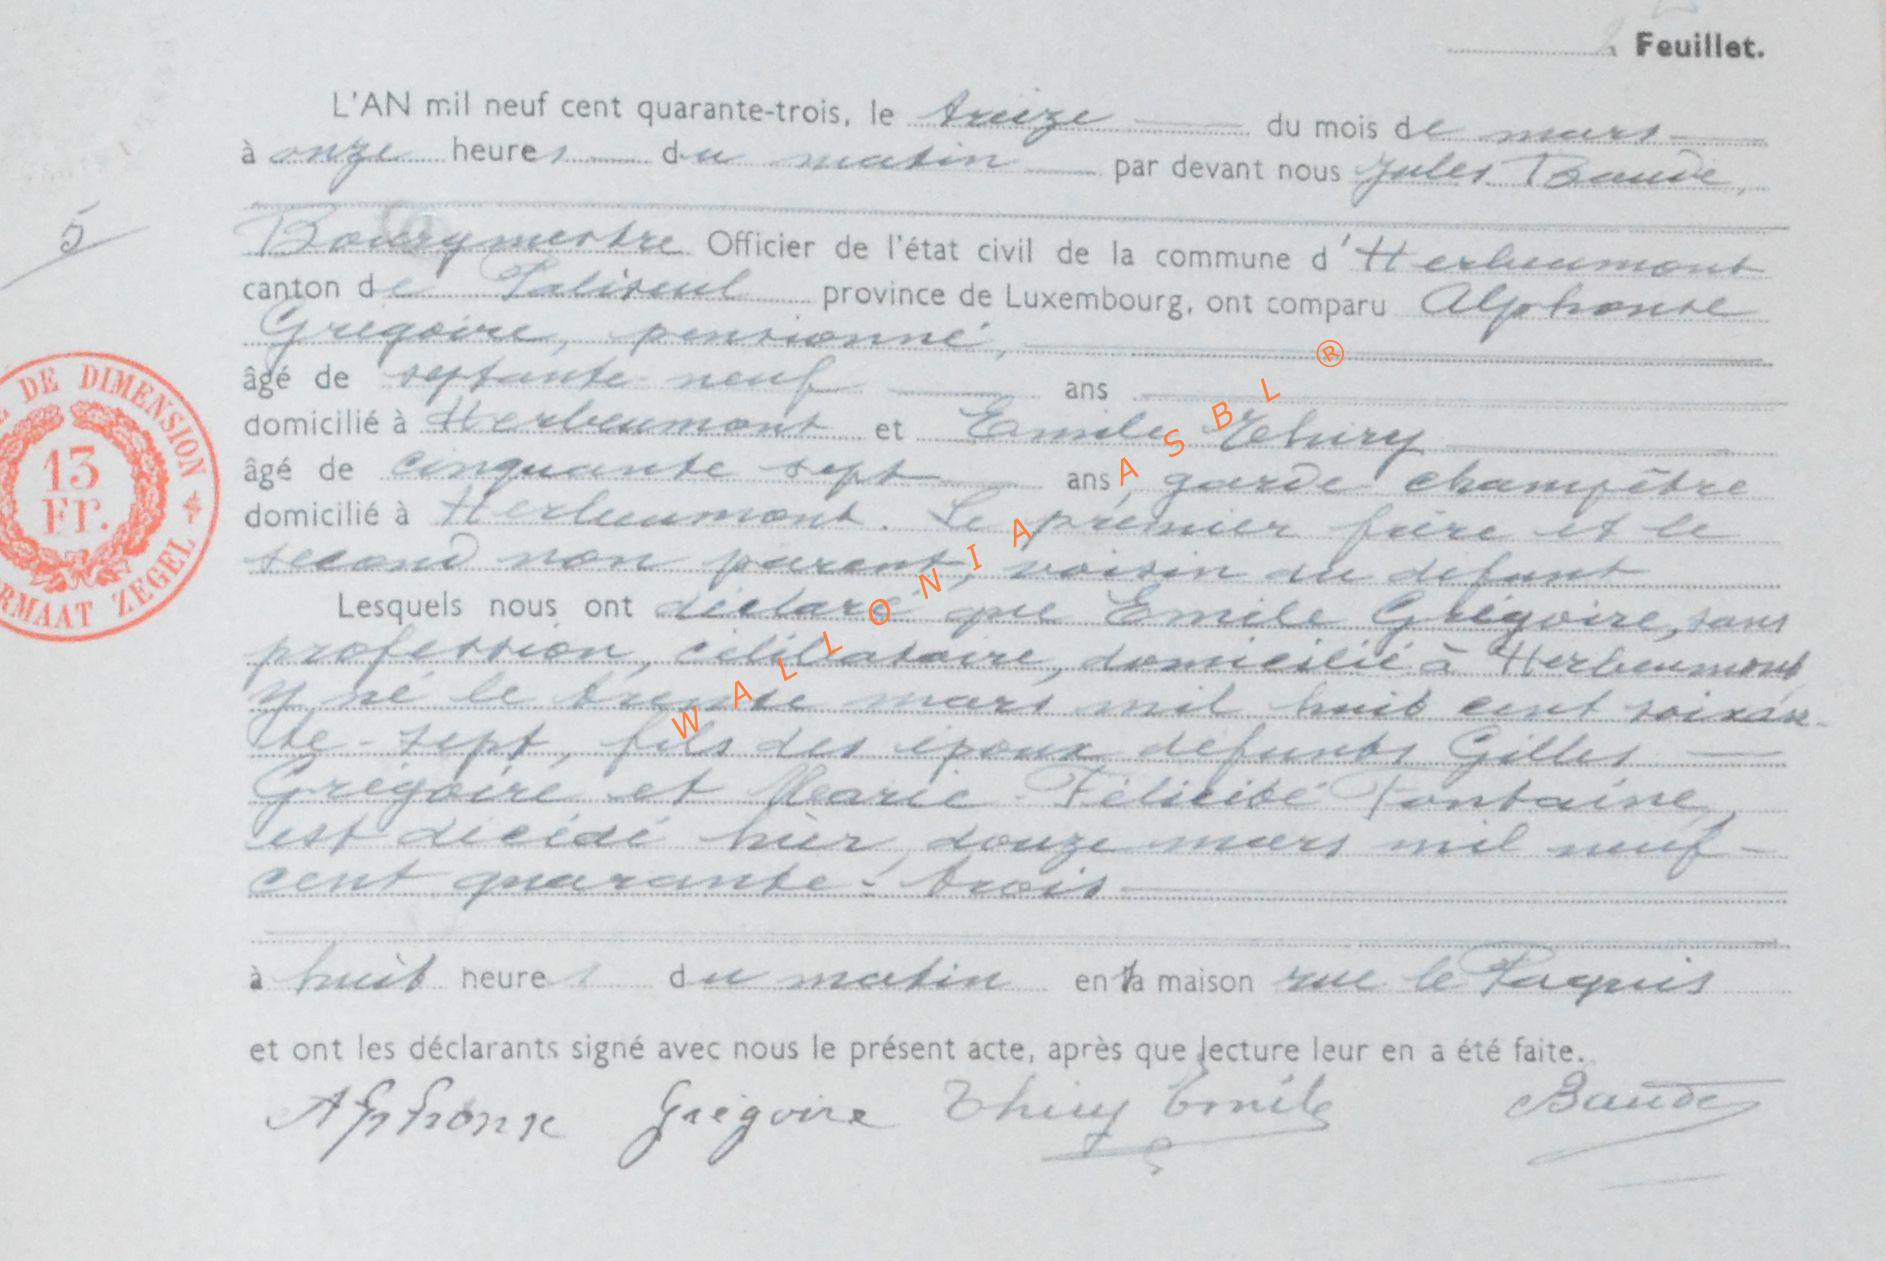 Feuillet.
L'AN mil neuf cent quarante-trois, le treize du mois de mars
à onze heures du matin par devant nous Jules Baude,
5
Bourgmestre Officier de l'état civil de la commune d'Herbeumont
canton de Paliseul province de Luxembourg, ont comparu Alphonse
Grégoire, pensionné,
âgé de septante neuf ans
domicilié à Herbeumont et Emile Thiry
âgé de cinquante sept ans, garde champêtre
domicilié à Herbeumont. Le premier frère et le
second non parent, voisin du défunt
Lesquels nous ont déclaré que Emile Grégoire, sans
profession, célibataire, domicilié à Herbeumont,
y né le trente mars mil huit cent soixan-
te-sept, fils des époux défunts Gilles
Grégoire et Marie-Félicité Fontaine,
est décédé hier, douze mars mil neuf-
cent quarante-trois
à huit heures du matin en sa maison rue le Paquis
et ont les déclarants signé avec nous le présent acte, après que lecture leur en a été faite.
Alphonse Grégoire Thiry Emile Baude
DE DIMENSION
13
Fr.
RMAAT ZEGEL
WALLONIA ASBL ®